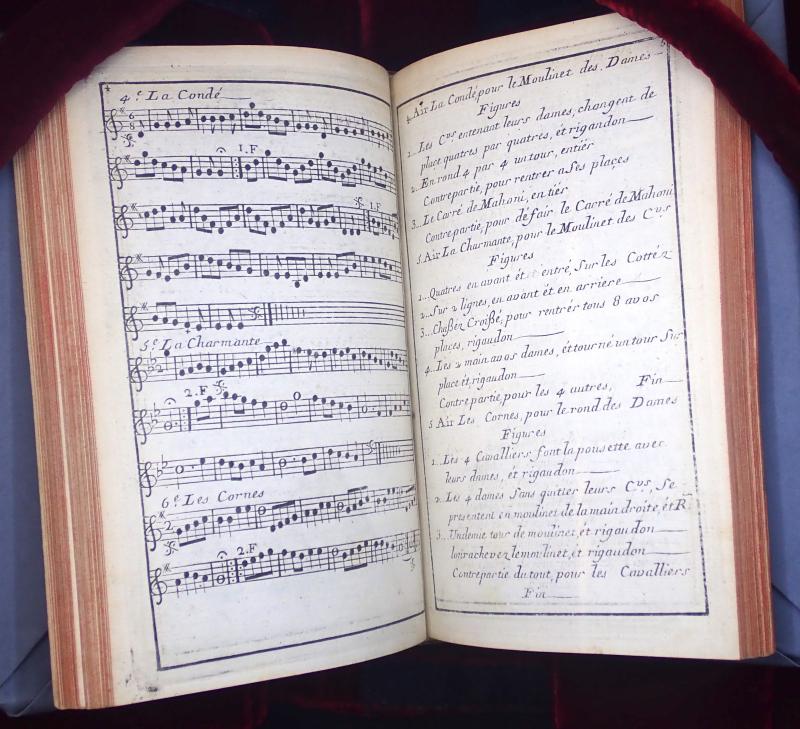 4
4.e La Condé
1.F
1.F
5.e La Charmante
2.F
6.e Les Cornes
2.F
5
4. Air La Condé pour le Moulinet des Dames
Figures
1... Les C.vs entenant leurs dames, changent de
place quatres par quatres, ét rigaudon
2.. En rond 4 par 4 un tour, entiér
Contrepartie, pour rentrer a ses places
3... Le Carré de Mahoni, en tiér
Contrepartie, pour défair le Carré de Mahoni
5. Air La Charmante, pour le Moulinet des C.vs
Figures
1... Quatres en avant ét entré, sur les Cottéz
2... Sur 2 lignes, en avant ét en arriere
3... Chaßéz Croißé, pour rentrér tous 8 a vos
places, rigaudon
4.. Les 2 main a vos dames, ét tourné un tour sur
place ét, rigaudon
Contrepartie, pour les 4 autres, Fin
5 Air Les Cornes, pour le rond des Dames
Figures
1... Les 4 Cavalliers font la pousette avec
leurs dames, ét rigaudon
2... Les 4 dames sans quitter leurs C.vs, se
presentent en moulinet de la main droite, ét R.
3... Un demie tour de moulinet, ét rigaudon
achevez le moulinet, et rigaudon
Contrepartie du tout, pour les Cavalliers
Fin